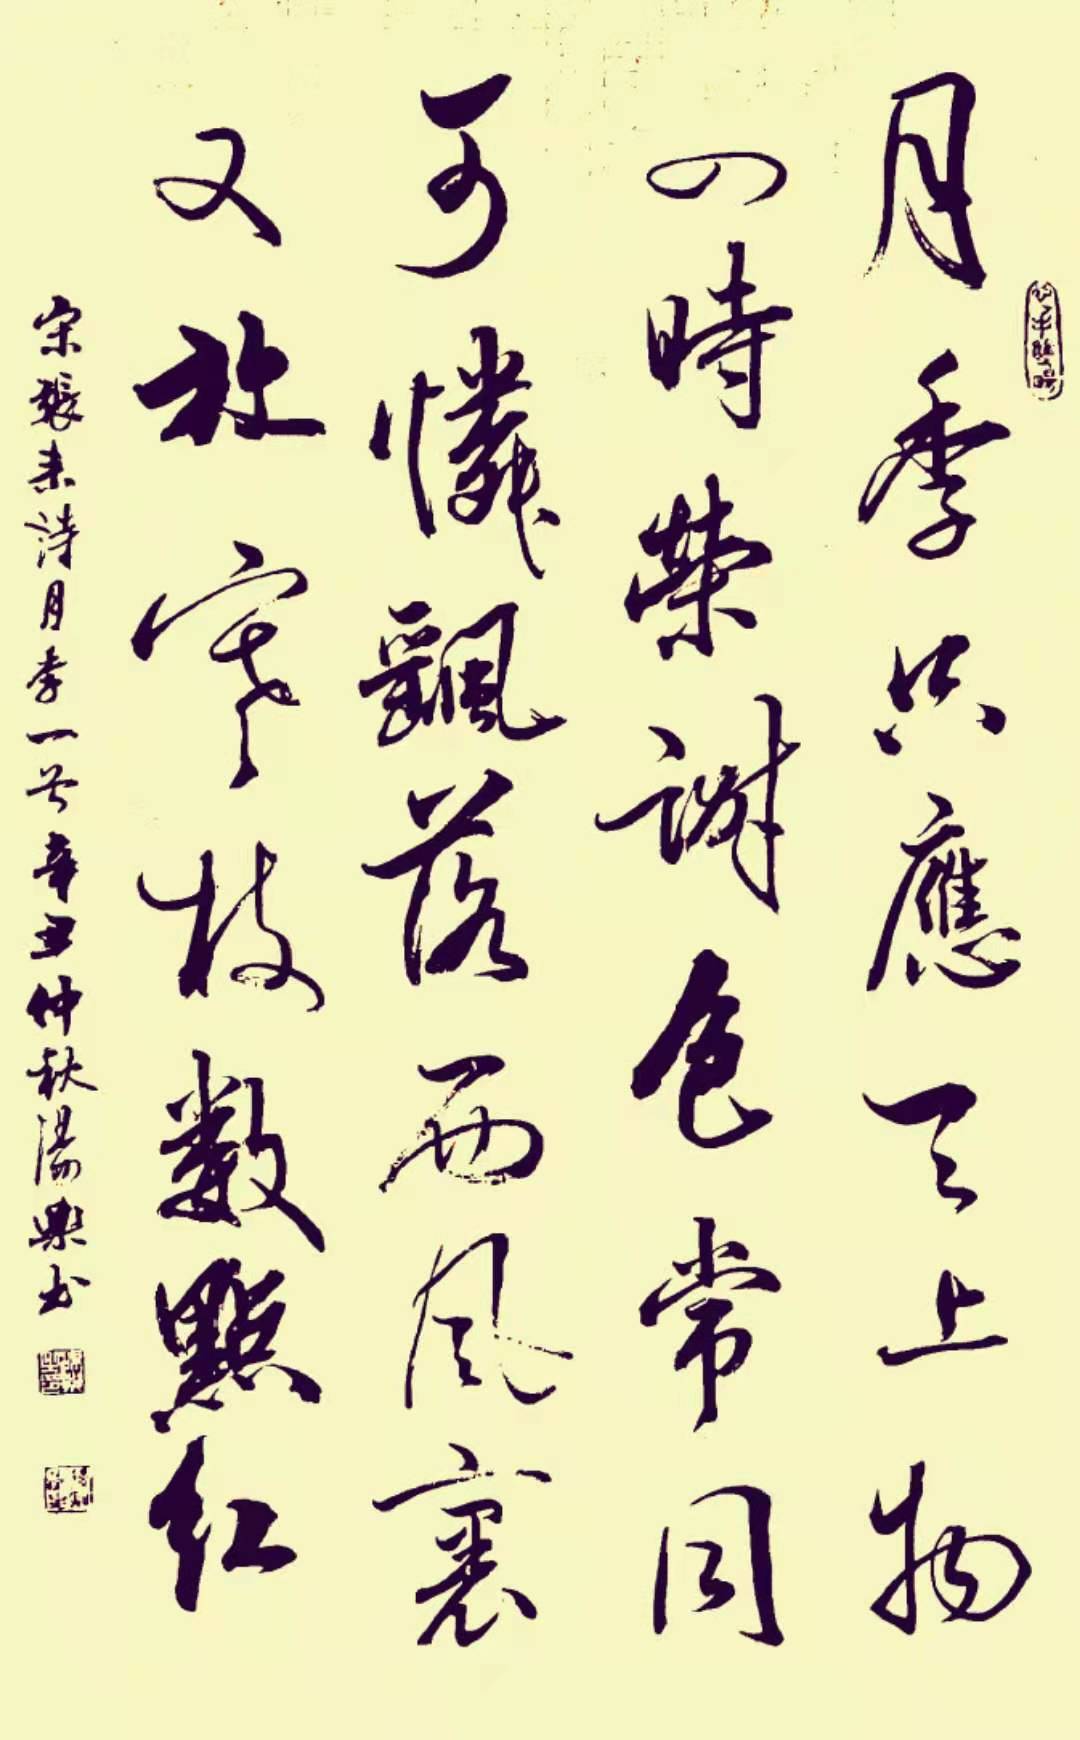 月季只應天上物
四時榮謝色常同
可憐飄落西風裏
又放寒枝數點紅
宋張耒詩月季一首辛丑仲秋湯樂书